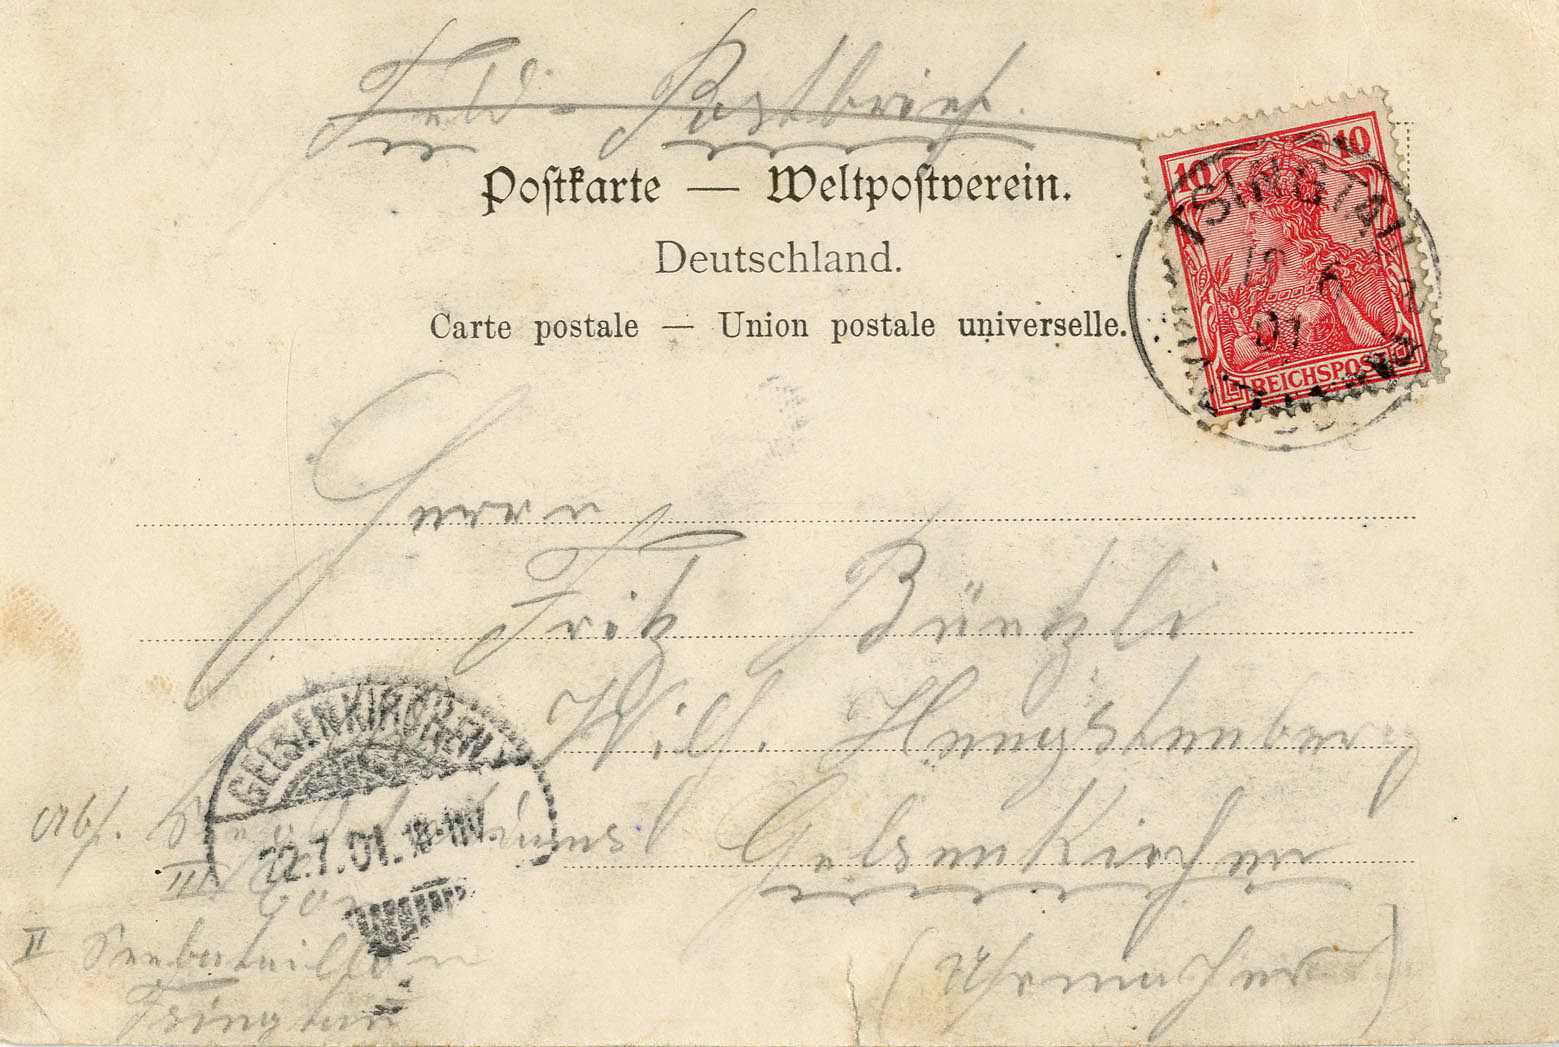 Feld-Postbrief.
Postkarte — Weltpostverein.
Deutschland.
Carte postale — Union postale universelle.
10 10
REICHSPOST
TSINGTAU
01
Herrn
Fritz
Wilh. Hengstenberg
Gelsenkirchen
(Uhrmacher)
GELSENKIRCHEN
22.7.01.
Abs.
III
II Seebataillon
Tsingtau